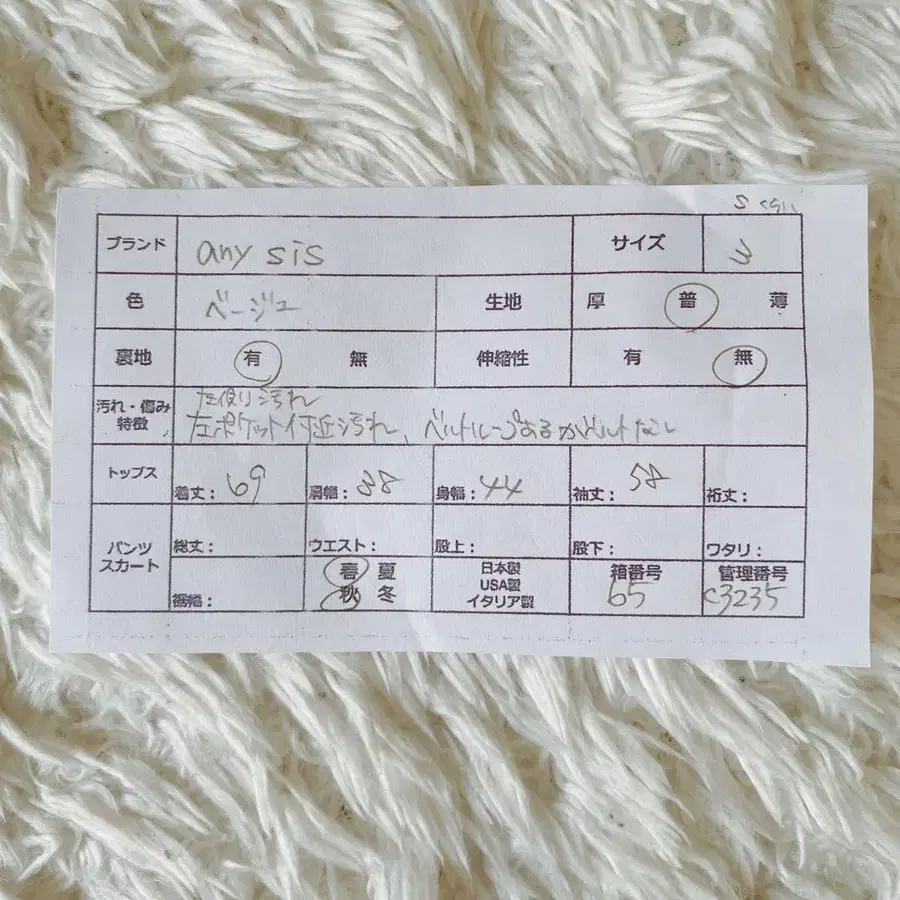 S くらい
ブランド any sis サイズ 3
色 ベージュ 生地 厚 普 薄
裏地 有 無 伸縮性 有 無
汚れ・傷み 左側り汚れ
特徴 左ポケット付近汚れ、ベルトループあるがベルトなし
トップス 着丈: 69 肩幅: 38 身幅: 44 袖丈: 58 裄丈:
パンツ スカート 総丈: ウエスト: 股上: 股下: ワタリ:
裾幅: 春 夏 秋 冬 日本製 USA製 イタリア製 箱番号 65 管理番号 c3235